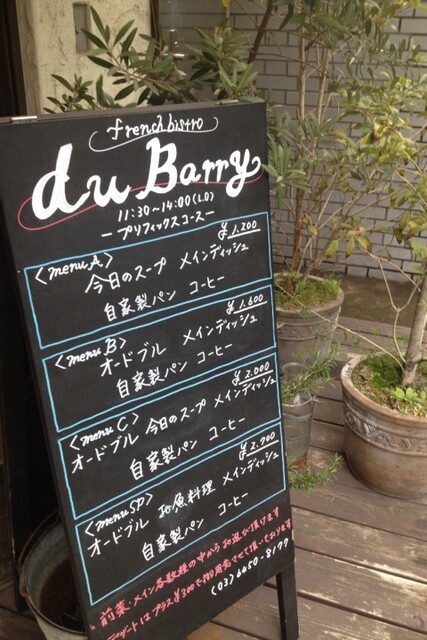 french bistro
du Barry
11:30～14:00(L.O)
ー プリフィックスコース ー
<menu A> ¥1,200
今日のスープ メインディッシュ
自家製パン コーヒー
<menu B> ¥1,600
オードブル メインディッシュ
自家製パン コーヒー
<menu C> ¥2,000
オードブル 今日のスープ メインディッシュ
自家製パン コーヒー
<menu SP> ¥2,700
オードブル お魚料理 メインディッシュ
自家製パン コーヒー
前菜・メイン各数種の中からお選び頂けます
デザートはプラス¥300で御用意させて頂いております
(03)6450-8177